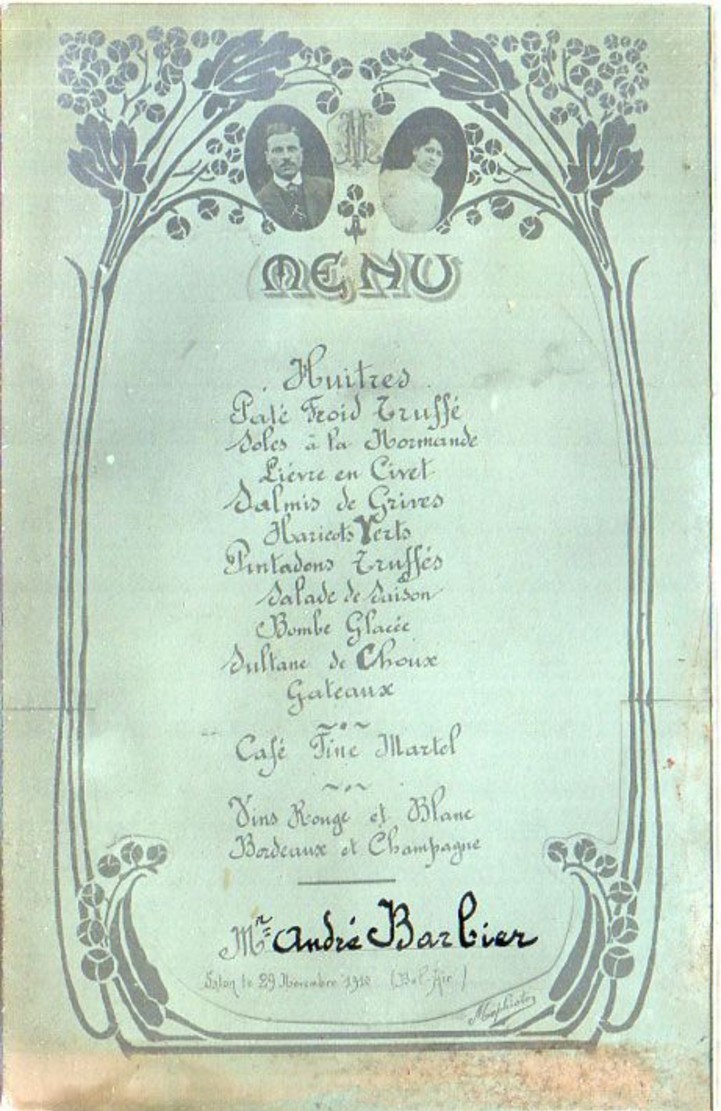 MENU
Huitres
Paté Froid Truffé
Soles à la Normande
Lièvre en Civet
Salmis de Grives
Haricots Verts
Pintadons Truffés
Salade de Saison
Bombe Glacée
Sultane de Choux
Gateaux
Café Fine Martel
Vins Rouge et Blanc
Bordeaux et Champagne
Mr André Barbier
Salon le 29 Novembre 1910 (Bel-Air)